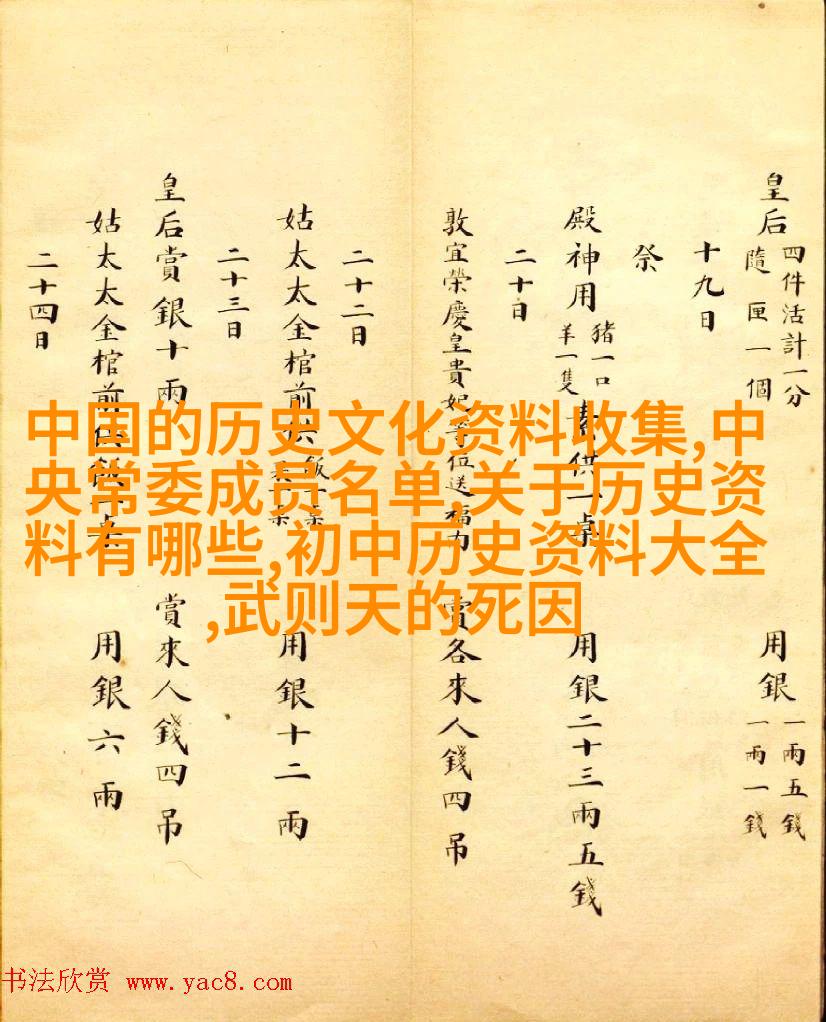 皇后 四件活計一分 隨匣一個 用銀 一兩五錢 一兩一錢
十九日
祭
殿神用 猪一口 羊一隻 素供一桌 用銀二十三兩五錢
二十日
敦宜榮慶皇貴妃等位送福力 賞各來人錢四吊
二十二日
姑太太金棺前供 飯一桌 菓一桌 用銀十二兩
二十三日
皇后賞銀十兩 賞來人錢四吊
姑太太金棺前供飯一桌 用銀六兩
二十四日
中国的历史文化资料收集,中
央常委成员名单,关于历史资
料有哪些,初中历史资料大全
,武则天的死因
书法欣赏 www.yac8.com